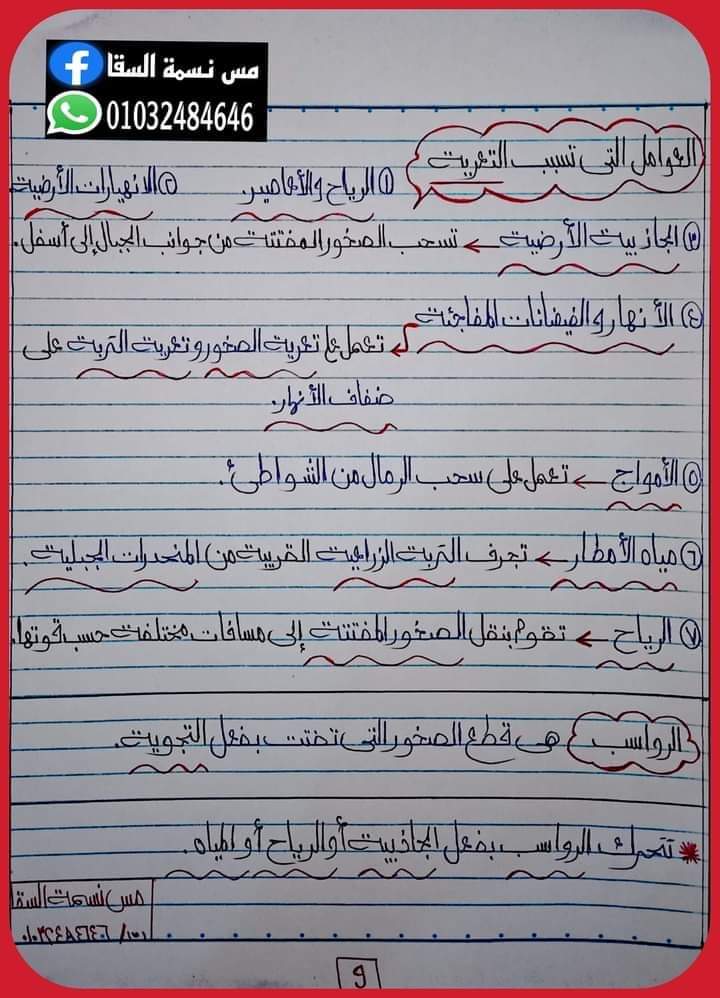 مس نسمة السقا
01032484646
العوامل التى تسبب التعرية
① الرياح والأعاصير. ② الانهيارات الأرضية
③ الجاذبية الأرضية ← تسحب الصخور المفتتة من جوانب الجبال إلى أسفل.
④ الأنهار والفيضانات المفاجئة
تعمل على تعرية الصخور وتعرية التربة على
ضفاف الأنهار.
⑤ الأمواج ← تعمل على سحب الرمال من الشواطئ.
⑥ مياه الأمطار ← تجرف التربة الزراعية القريبة من المنحدرات الجبلية.
⑦ الرياح ← تقوم بنقل الصخور المفتتة إلى مسافات مختلفة حسب قوتها.
الرواسب هى قطع الصخور التى تفتتت بفعل التجوية.
* تتحرك الرواسب بفعل الجاذبية أو الرياح أو المياه.
مس نسمة السقا
9